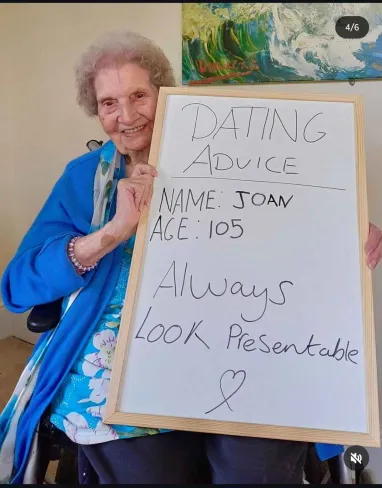 4/6
DATING
ADVICE
NAME: JOAN
AGE: 105
Always
LOOK Presentable